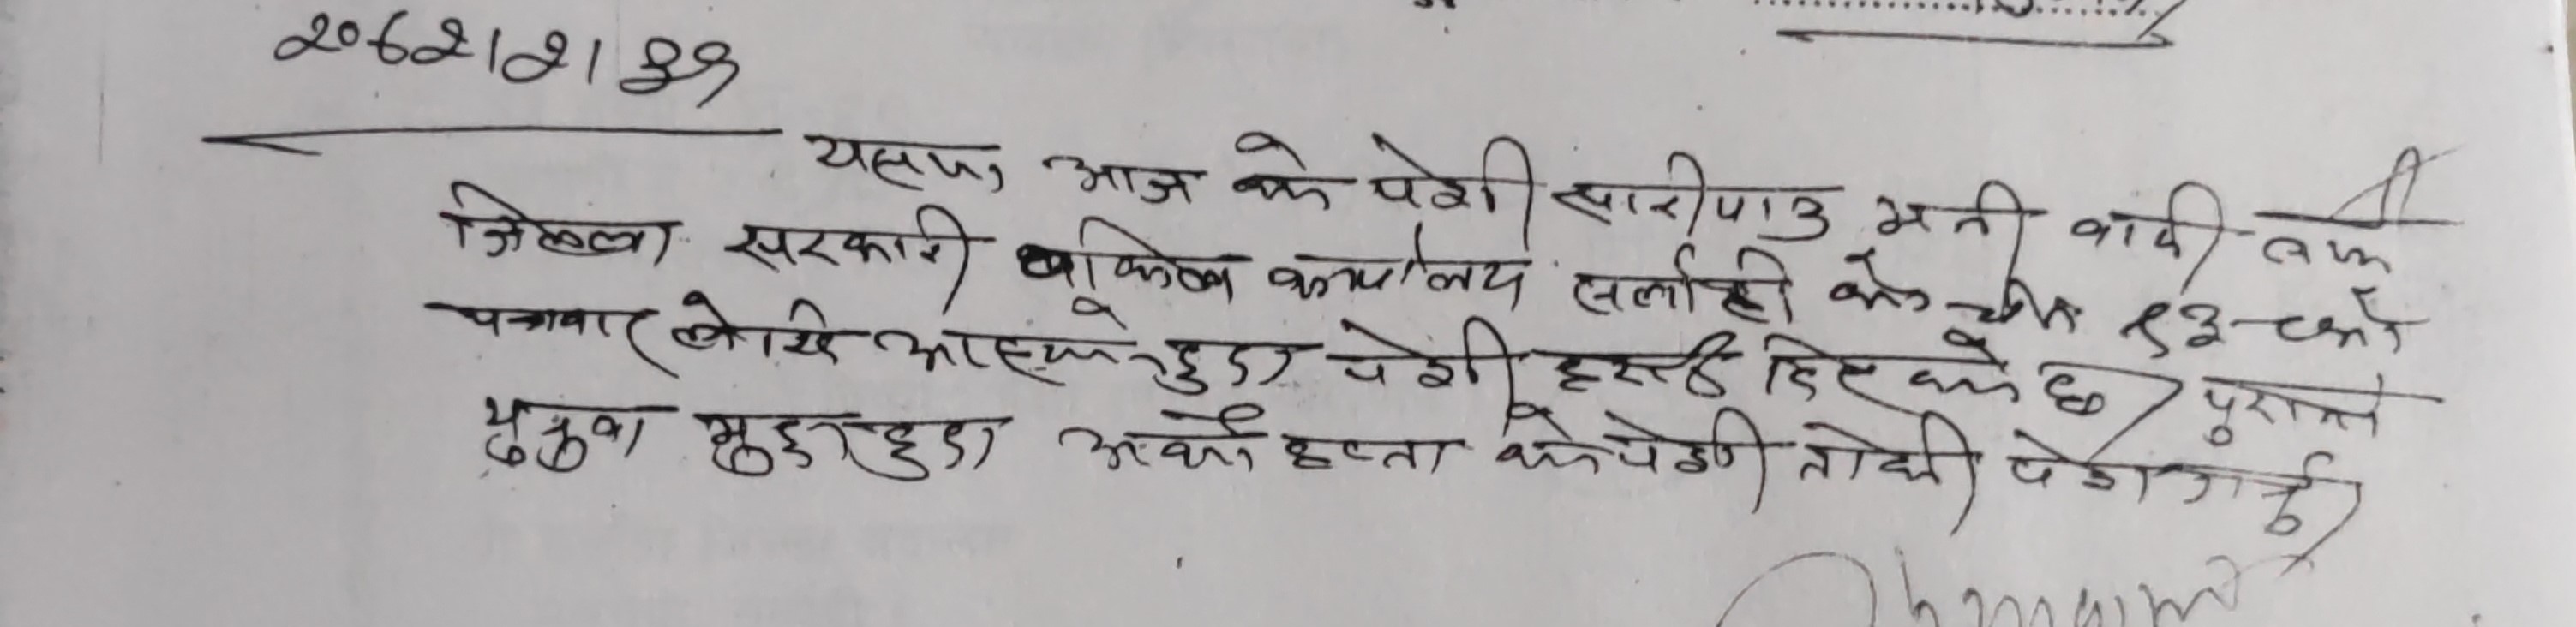 २०६२।२।३१
यसमा आज को पेशी सारी पाउ भनी वादी तर्फ
जिल्ला सरकारी वकिल कार्यालय सर्लाही को च.नं.
पत्रबाट लेखि आएको हुदा पेशी हटाई दिएको छ। पुरानो
थुनुवा मुद्दा हुदा अर्को हप्ता को पेशी तोकी पेश गर्नु।